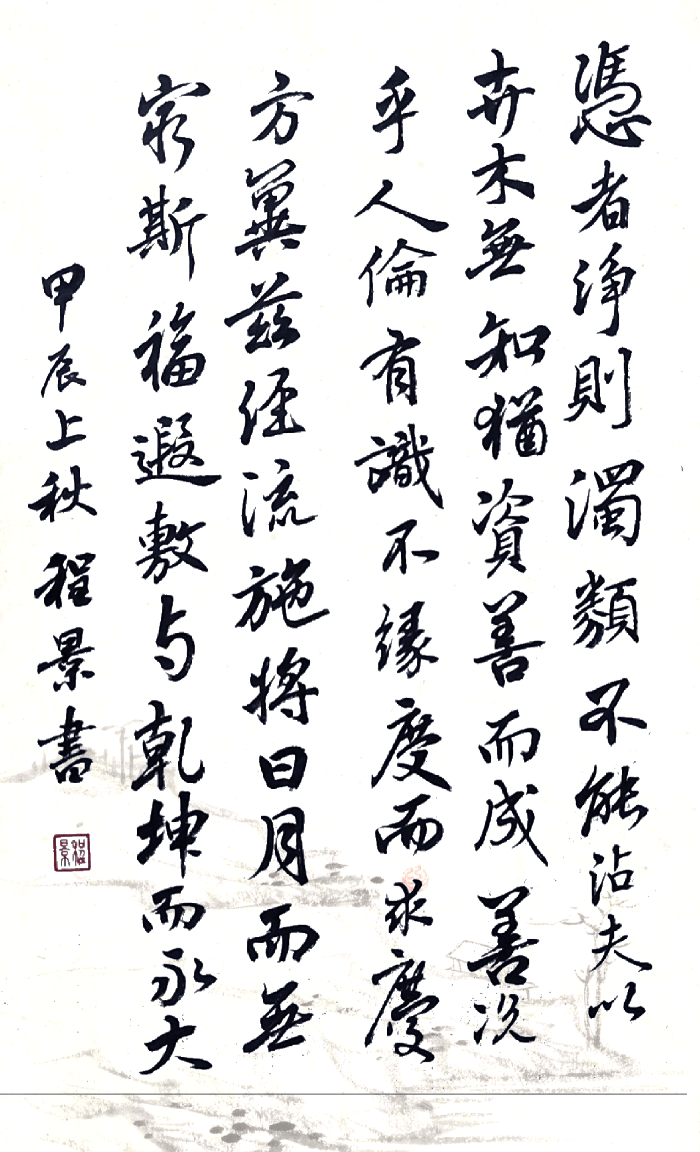 憑者淨則濁類不能沾夫以
卉木無知猶資善而成善況
乎人倫有識不緣慶而求慶
方冀茲經流施將日月而無
窮斯福遐敷与乾坤而永大
甲辰上秋程景書
程景